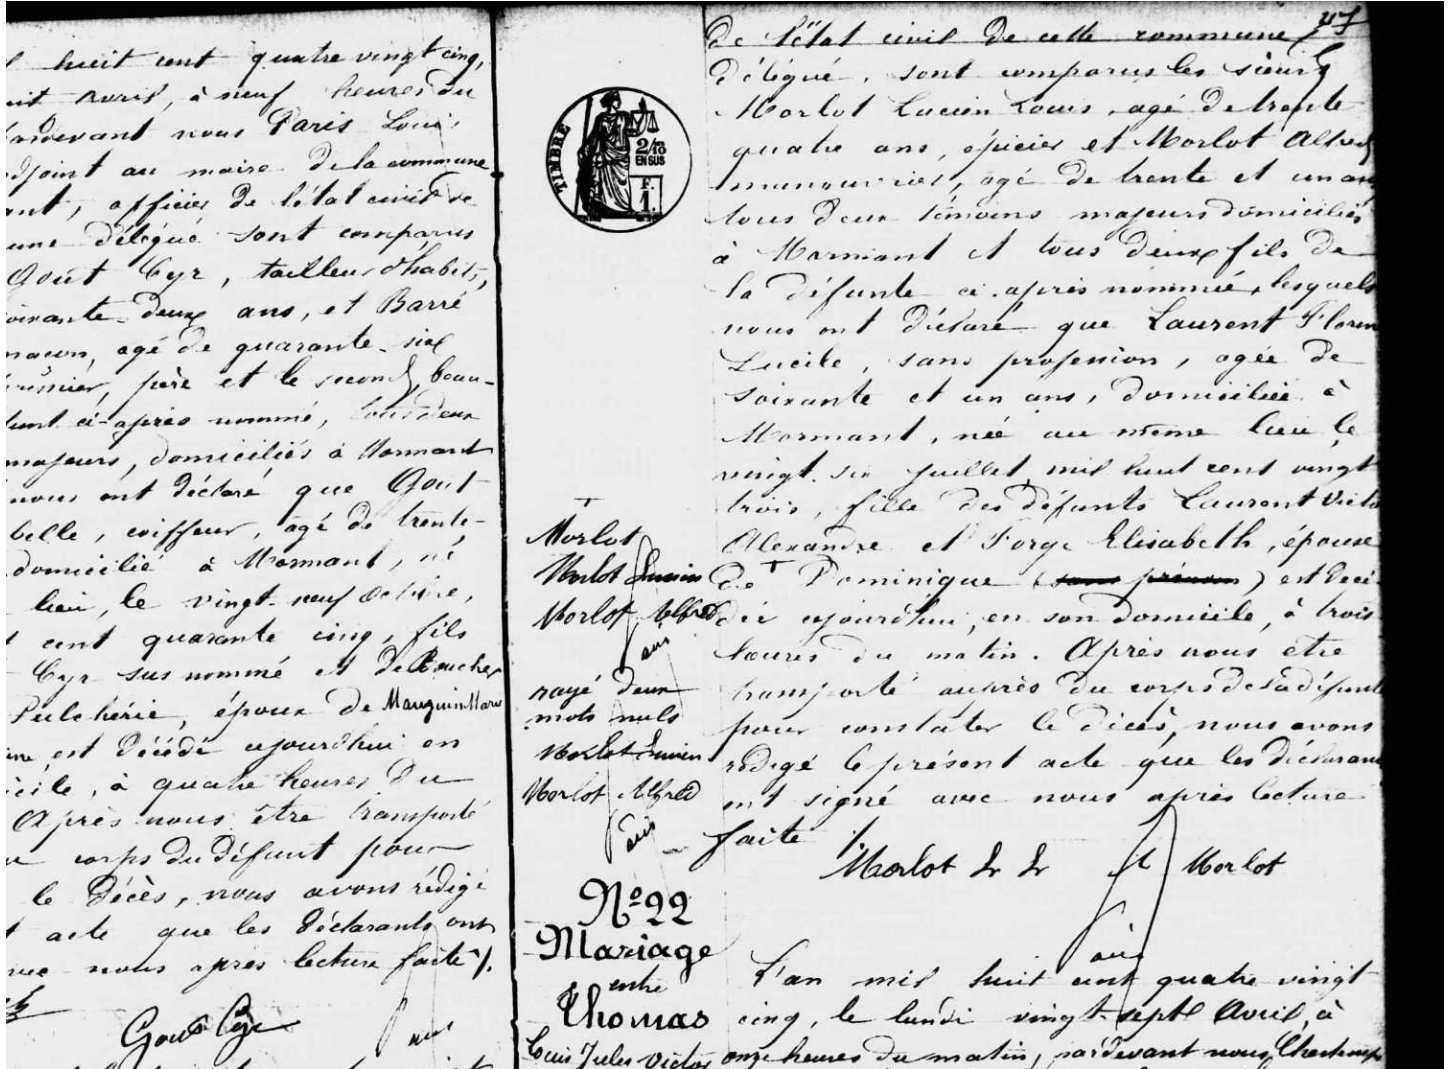 huit cent quatre vingt cinq,
avril, à neuf heures du
pardevant nous Paris Louis
adjoint au maire de la commune
officier de l'état civil
délégué sont comparus
Gout Cyr, tailleur d'habits,
soixante-deux ans, et Barré
maçon, agé de quarante-six
premier, père et le second, beau-
ci-après nommé, tous deux
majeurs, domiciliés à Mormant
nous ont déclaré que Gout
belle, coiffeur, agé de trente-
domicilié à Mormant, né
lieu, le vingt-neuf octobre,
cent quarante cinq, fils
Cyr sus nommé et de Boucher
Pulchérie, époux de Mauguin Marie
est décédé aujourd'hui en
à quatre heures du
Après nous être transporté
corps du défunt pour
le décès, nous avons rédigé
acte que les déclarants ont
nous après lecture faite /.
Gout Cyr
TIMBRE
2/10
EN SUS
F.
1.
Morlot
Morlot Lucien
Morlot Alfred
Paris
rayé deux
mots nuls
Morlot Lucien
Morlot Alfred
Paris
47
de l'état civil de cette commune
délégué, sont comparus les sieurs
Morlot Lucien Louis, agé de trente
quatre ans, épicier et Morlot Alfred
manouvrier, agé de trente et un ans
tous deux témoins majeurs domiciliés
à Mormant et tous deux fils de
la défunte ci-après nommée, lesquels
nous ont déclaré que Laurent Floren
Lucile, sans profession, agée de
soixante et un ans, domiciliée à
Mormant, née au même lieu le
vingt-six juillet mil huit cent vingt
trois, fille des défunts Laurent Victo
Alexandre et Forge Elisabeth, épouse
de T Dominique (sans prénom) est décé
dée aujourd'hui, en son domicile, à trois
heures du matin. Après nous etre
transporté auprès du corps de la défunte
pour constater le décès, nous avons
rédigé le présent acte que les déclarants
ont signé avec nous après lecture
faite /.
Morlot L L A Morlot
Paris
Nº 22
Mariage
entre
Thomas
Louis Jules Victor
L'an mil huit cent quatre vingt
cinq, le lundi vingt-sept Avril, à
onze heures du matin, pardevant nous